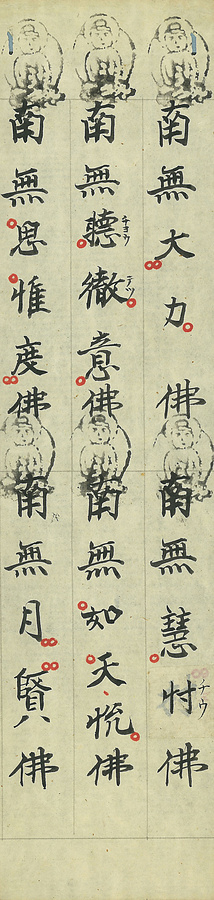 南無大力佛南無慧忖佛
南無聽徹意佛南無如天悅佛
南無思惟度佛南無月賢佛
チヨウ
テツ
チウ